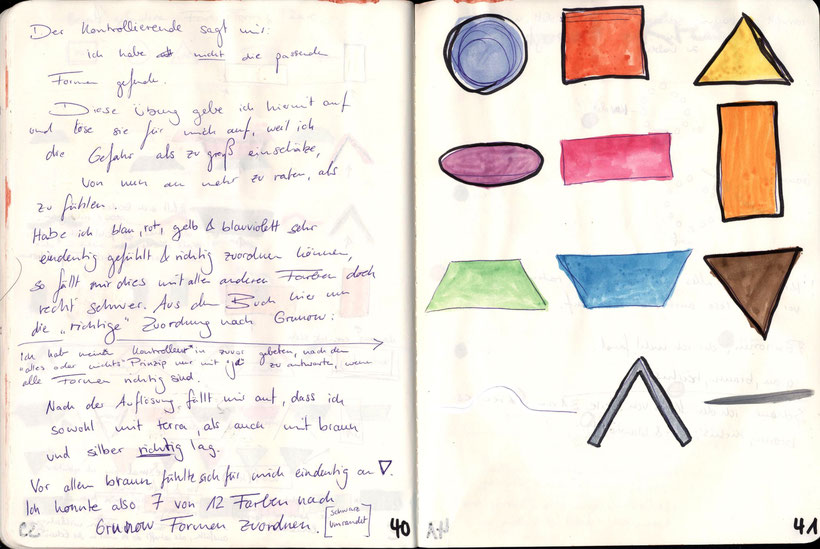 Der Kontrollierende sagt mir:
ich habe nicht die passenden
Formen gefunden.
Diese Übung gebe ich hiermit auf
und löse sie für mich auf, weil ich
die Gefahr als zu groß einschätze,
von nun an mehr zu raten, als
zu fühlen.
Habe ich blau, rot, gelb & blauviolett sehr
eindeutig gefühlt & richtig zuordnen können,
so fällt mir dies mit allen anderen Farben doch
recht schwer. Aus dem Buch hier nun
die „richtige" Zuordnung nach Grunow:
Ich hab meine Kontrolleur*in zuvor gebeten, nach dem
"alles oder nichts" Prinzip nur mit "ja" zu antworten, wenn
alle Formen richtig sind.
Nach der Auflösung fällt mir auf, dass ich
sowohl mit terra, als auch mit braun
und silber richtig lag.
Vor allem braun fühlte sich für mich eindeutig an
Ich konnte also 7 von 12 Farben nach
Grunow Formen zuordnen. [schwarz
umrandet]
40
41